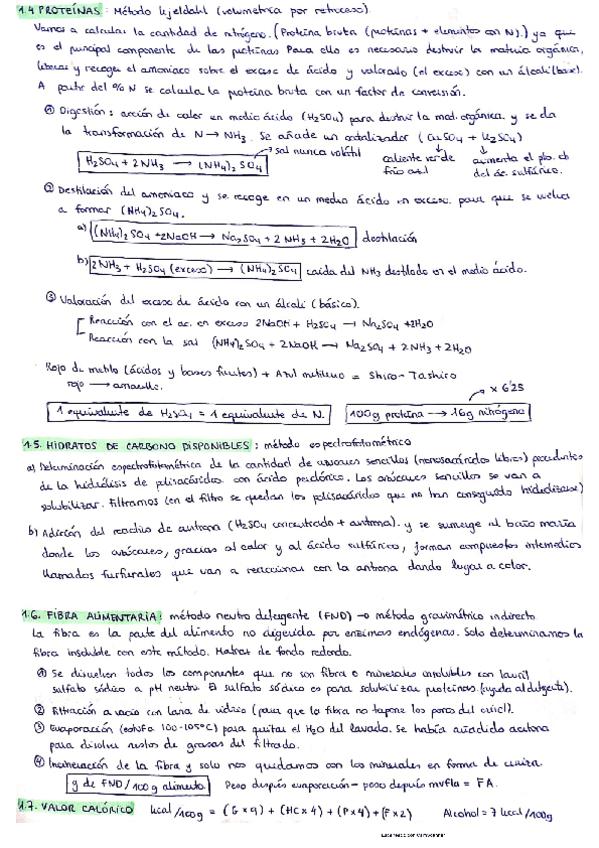 1.4 PROTEÍNAS: Método Kjeldahl (volumetría por retroceso).
Vamos a calcular la cantidad de nitrógeno. (Proteína bruta (proteínas + elementos con N).) ya que
es el principal componente de las proteínas. Para ello es necesario destruir la materia orgánica,
liberar y recoger el amoniaco sobre el exceso de ácido y valorarlo (el exceso) con un álcali (base).
A partir del % N se calcula la proteína bruta con un factor de conversión.
① Digestión: acción de calor en medio ácido (H2SO4) para destruir la mat. orgánica. y se da
la transformación de N → NH3. Se añade un catalizador (CuSO4 + K2SO4)
→ sal nunca volátil
H2SO4 + 2NH3 → (NH4)2SO4
caliente verde
frío azul
aumenta el pto. eb
del ác. sulfúrico.
② Destilación del amoniaco y se recoge en un medio ácido en exceso. para que se vuelva
a formar (NH4)2SO4.
a) (NH4)2SO4 + 2NaOH → Na2SO4 + 2NH3 + 2H2O destilación
b) 2NH3 + H2SO4 (exceso) → (NH4)2SO4 caída del NH3 destilado en el medio ácido.
③ Valoración del exceso de ácido con un álcali (básico).
Reacción con el ac. en exceso 2NaOH + H2SO4 → Na2SO4 + 2H2O
Reacción con la sal (NH4)2SO4 + 2NaOH → Na2SO4 + 2NH3 + 2H2O
Rojo de metilo (ácidos y bases fuertes) + Azul metileno = Shiro-Tashiro
rojo → amarillo.
x 6'25
1 equivalente de H2SO4 = 1 equivalente de N.
100g proteína → 16g nitrógeno
1.5. HIDRATOS DE CARBONO DISPONIBLES: método espectrofotométrico
a) Determinación espectrofotométrica de la cantidad de azúcares sencillos (monosacáridos libres) procedentes
de la hidrólisis de polisacáridos con ácido perclórico. Los azúcares sencillos se van a
solubilizar. Filtramos (en el filtro se quedan los polisacáridos que no han conseguido hidrolizarse)
b) Adición del reactivo de antrona (H2SO4 concentrado + antrona). y se sumerge al baño maría
donde los azúcares, gracias al calor y al ácido sulfúrico, forman compuestos intermedios
llamados furfurales que van a reaccionar con la antrona dando lugar a color.
1.6. FIBRA ALIMENTARIA: método neutro detergente (FND) → método gravimétrico indirecto
La fibra es la parte del alimento no digerida por enzimas endógenas. Solo determinamos la
fibra insoluble con este método. Matraz de fondo redondo.
① Se disuelven todos los componentes que no son fibra o minerales insolubles con lauril
sulfato sódico a pH neutro. El sulfato sódico es para solubilizar proteínas. (ayuda al detergente).
② Filtración a vacío con lana de vidrio (para que la fibra no tapone los poros del crisol).
③ Evaporación (estufa 100-105ºC) para quitar el H2O del lavado. Se había añadido acetona
para disolver restos de grasas del filtrado.
④ Incineración de la fibra y solo nos quedamos con los minerales en forma de ceniza.
g de FND/100g alimento
Peso después evaporación - peso después mufla = FA.
1.7. VALOR CALÓRICO kcal/100g = (G x 9) + (HC x 4) + (P x 4) + (F x 2) Alcohol = 7 kcal/100g